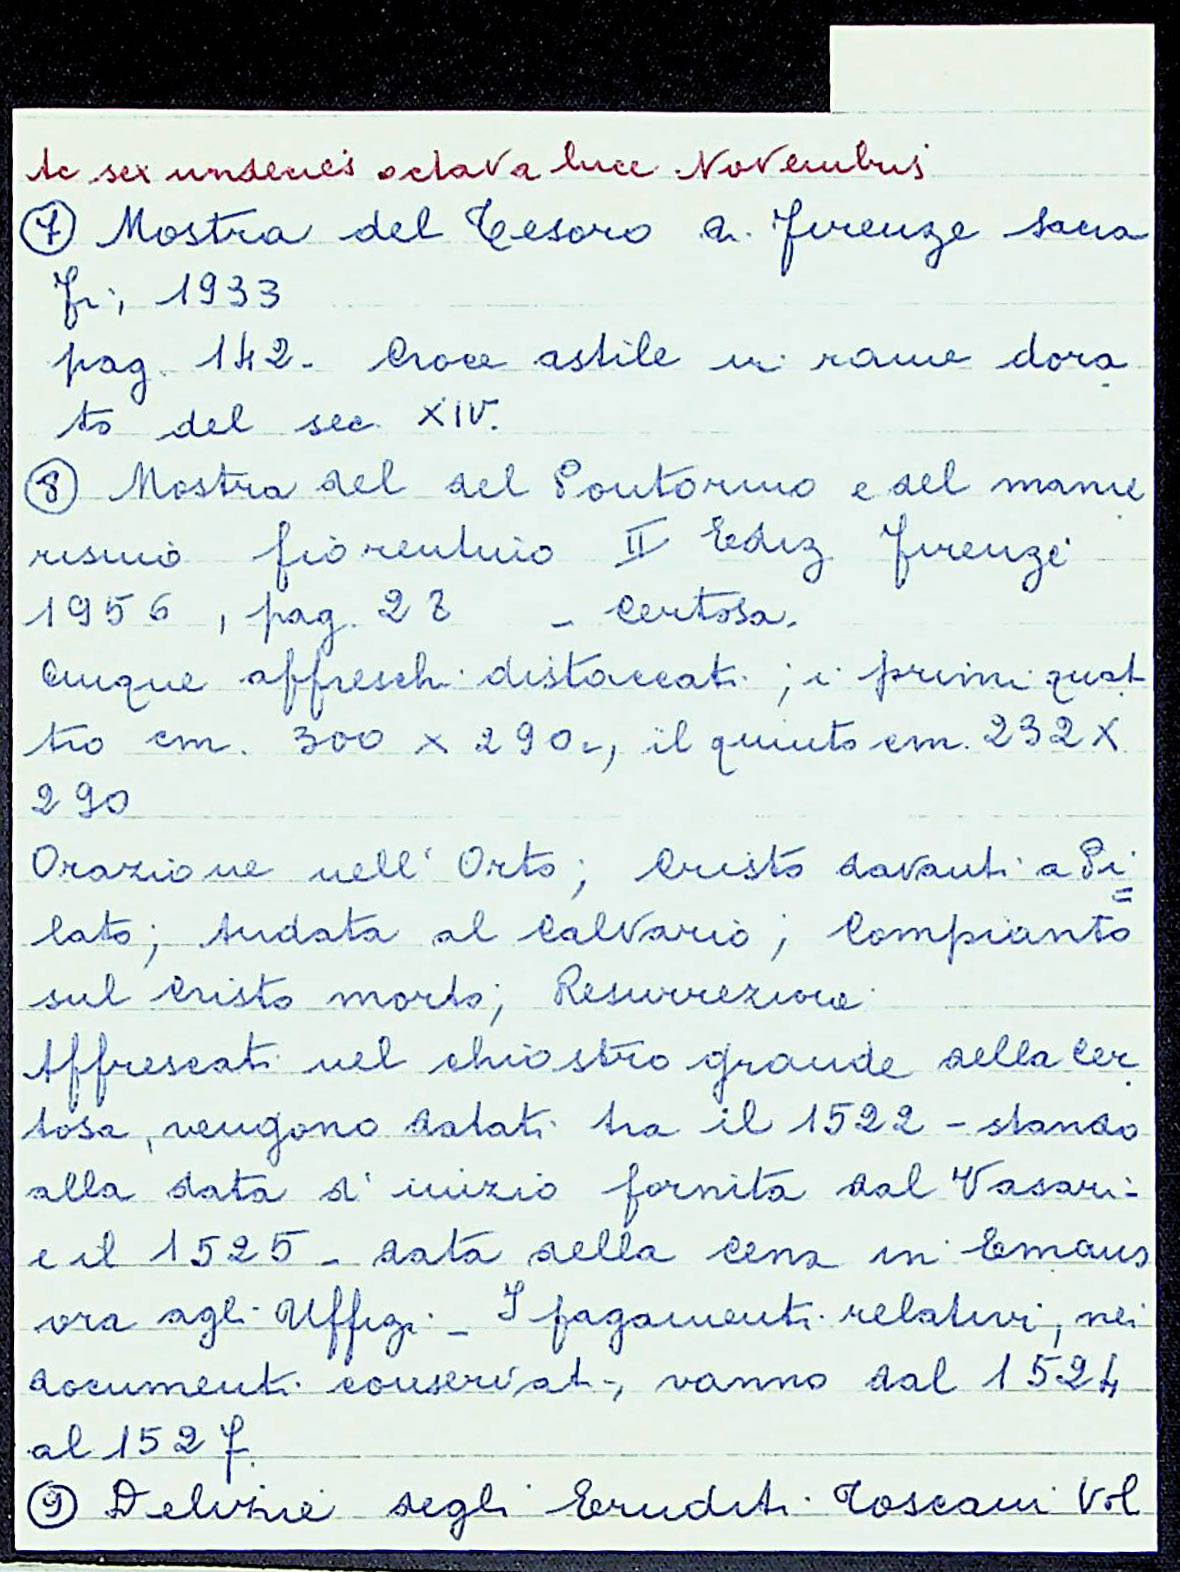 ac sex undenis octava luce Novembris
⑦ Mostra del Tesoro di Firenze Sacra
Fi, 1933
pag. 142 - Croce astile in rame dora
to del sec. XIV.
⑧ Mostra del del Pontormo e del manie
rismo fiorentino II Ediz Firenze
1956, pag. 28 - Certosa.
Cinque affreschi distaccati; i primi quat
tro cm. 300 x 290., il quinto cm. 232 X
290
Orazione nell'Orto; Cristo davanti a Pi=
lato; Andata al Calvario; Compianto
sul Cristo morto; Resurrezione
Affrescati nel chiostro grande della Cer
tosa, vengono datati tra il 1522 - stando
alla data d'inizio fornita dal Vasari -
e il 1525 - data della Cena in Emaus
ora agli Uffizi - I pagamenti relativi, nei
documenti conservati, vanno dal 1524
al 1527
⑨ Delizie degli Eruditi Toscani Vol